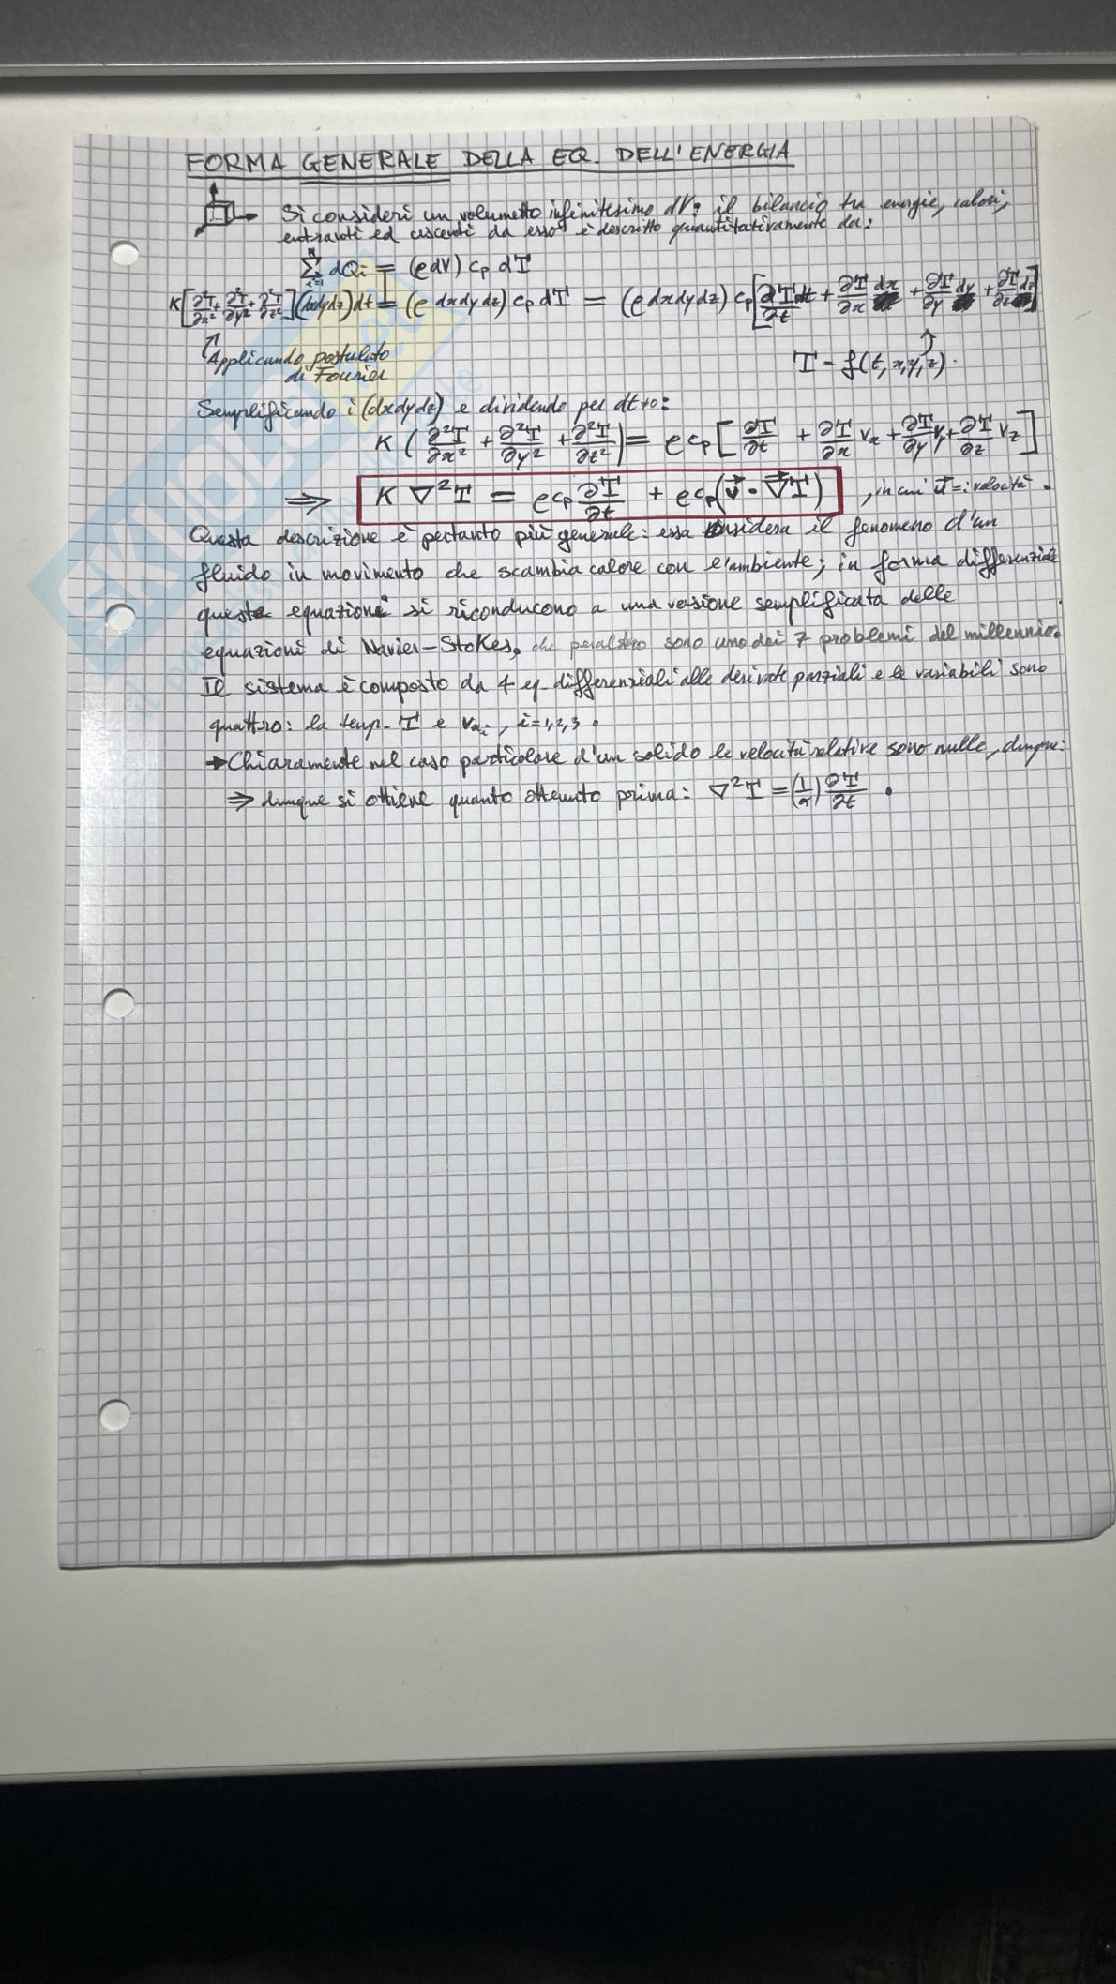 FORMA GENERALE DELLA EQ. DELL'ENERGIA
Si consideri un volumetto infinitesimo dV: il bilancio tra energie, calori,
entranti ed uscenti da esso è descritto quantitativamente da:
∑ dQi = (ρdV) cp dT
K[∂²T/∂x² + ∂²T/∂y² + ∂²T/∂z²](dxdydz)dt = (ρ dxdydz) cp dT = (ρ dxdydz) cp[∂T/∂t dt + ∂T/∂x dx + ∂T/∂y dy + ∂T/∂z dz]
Applicando postulato
di Fourier
T = f(t,x,y,z).
Semplificando i (dxdydz) e dividendo per dt≠0:
K (∂²T/∂x² + ∂²T/∂y² + ∂²T/∂z²) = ρcp [∂T/∂t + ∂T/∂x vx + ∂T/∂y vy + ∂T/∂z vz]
⇒ K ∇²T = ρcp ∂T/∂t + ρcp(v⃗ · ∇⃗T) , in cui v⃗ = velocità.
Questa descrizione è pertanto più generale: essa considera il fenomeno d'un
fluido in movimento che scambia calore con l'ambiente; in forma differenziale
queste equazioni si riconducono a una versione semplificata delle
equazioni di Navier-Stokes, che peraltro sono uno dei 7 problemi del millennio.
Il sistema è composto da 4 eq. differenziali alle derivate parziali e le variabili sono
quattro: la temp. T e vxi, i=1,2,3.
→ Chiaramente nel caso particolare d'un solido le velocità relative sono nulle, dunque:
⇒ dunque si ottiene quanto ottenuto prima: ∇²T = (1/α) ∂T/∂t .
SKUOLA